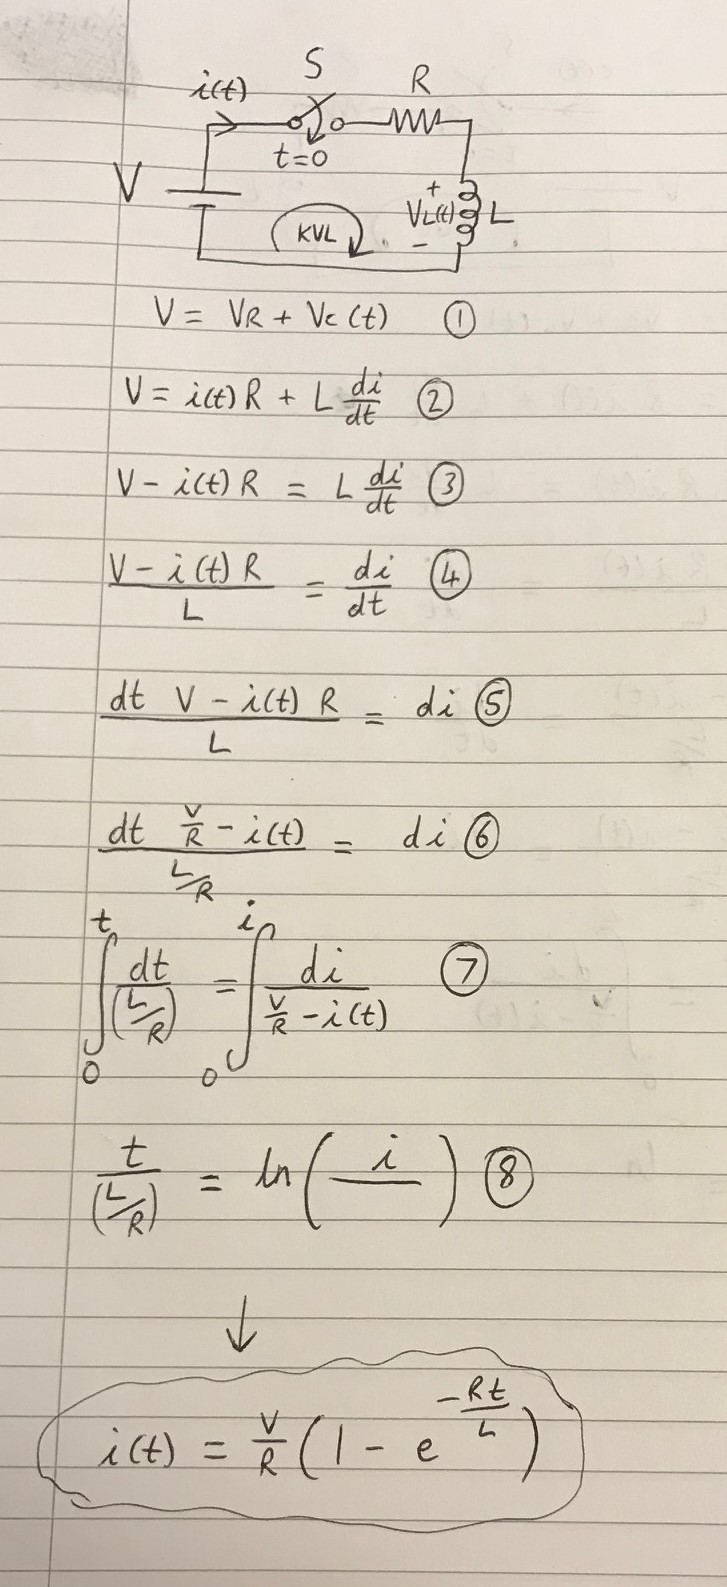 S
i(t)
R
t=0
V
+
VL(t)
L
-
KVL
V = VR + Vc(t) ①
V = i(t) R + L di/dt ②
V - i(t) R = L di/dt ③
(V - i(t) R)/L = di/dt ④
(dt V - i(t) R)/L = di ⑤
(dt V/R - i(t))/(L/R) = di ⑥
∫₀ᵗ dt/(L/R) = ∫₀ⁱ di/(V/R - i(t)) ⑦
t/(L/R) = ln(i/ ) ⑧
↓
i(t) = V/R (1 - e^(-Rt/L))